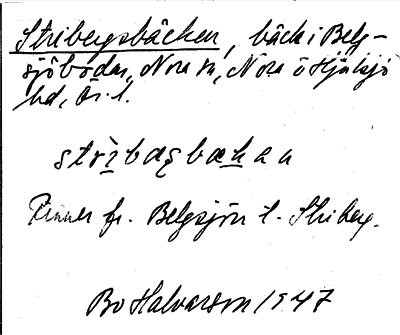 Stribergsbäcken, bäck i Belg-
sjöbodar, Nora sn, Nora o Hjulsjö
hd, Ör. l.
strìbaçbækan
Rinner fr. Belgsjön t. Striberg.
Bo Halvarson 1947